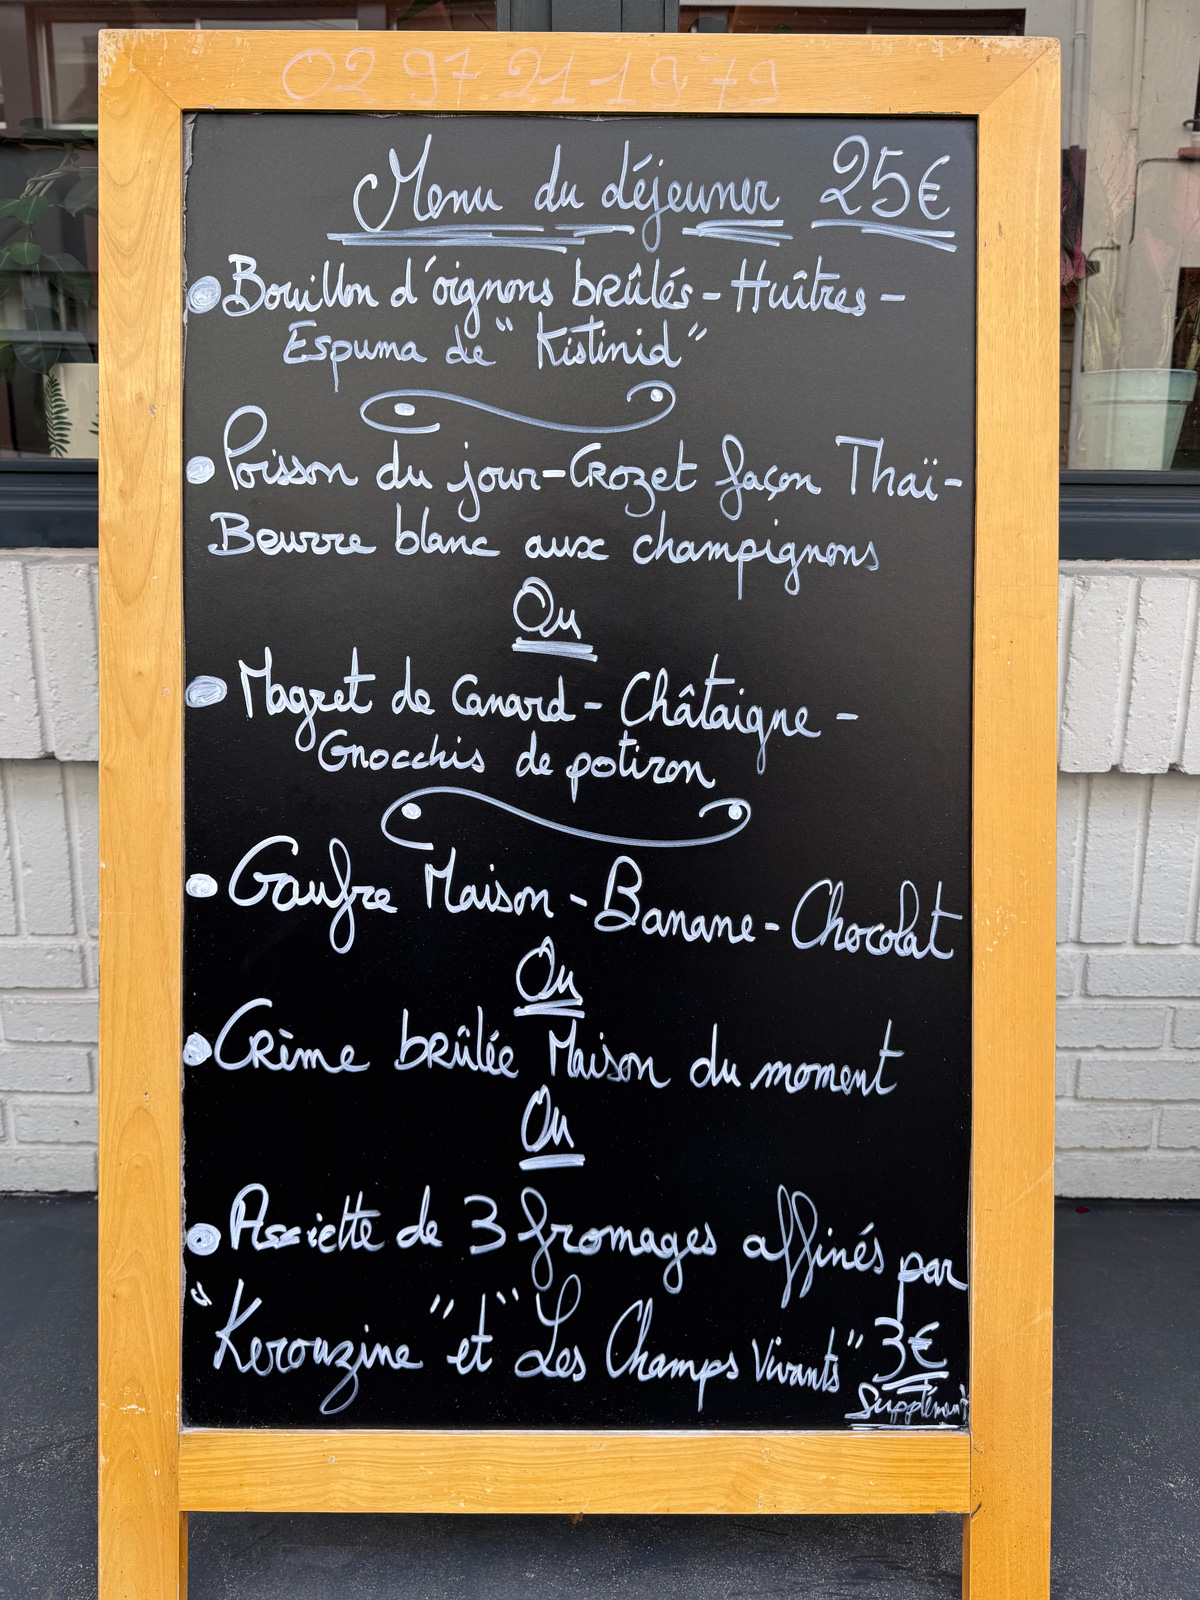 02 97 21 19 79
Menu du déjeuner 25€
Bouillon d'oignons brûlés - Huîtres -
Espuma de "Kistinid"
Poisson du jour - Crozet façon Thaï -
Beurre blanc aux champignons
Ou
Magret de Canard - Châtaigne -
Gnocchis de potiron
Gaufre Maison - Banane - Chocolat
Ou
Crème brûlée Maison du moment
Ou
Assiette de 3 fromages affinés par
"Kerouzine" et "Les Champs Vivants" 3€
Supplément